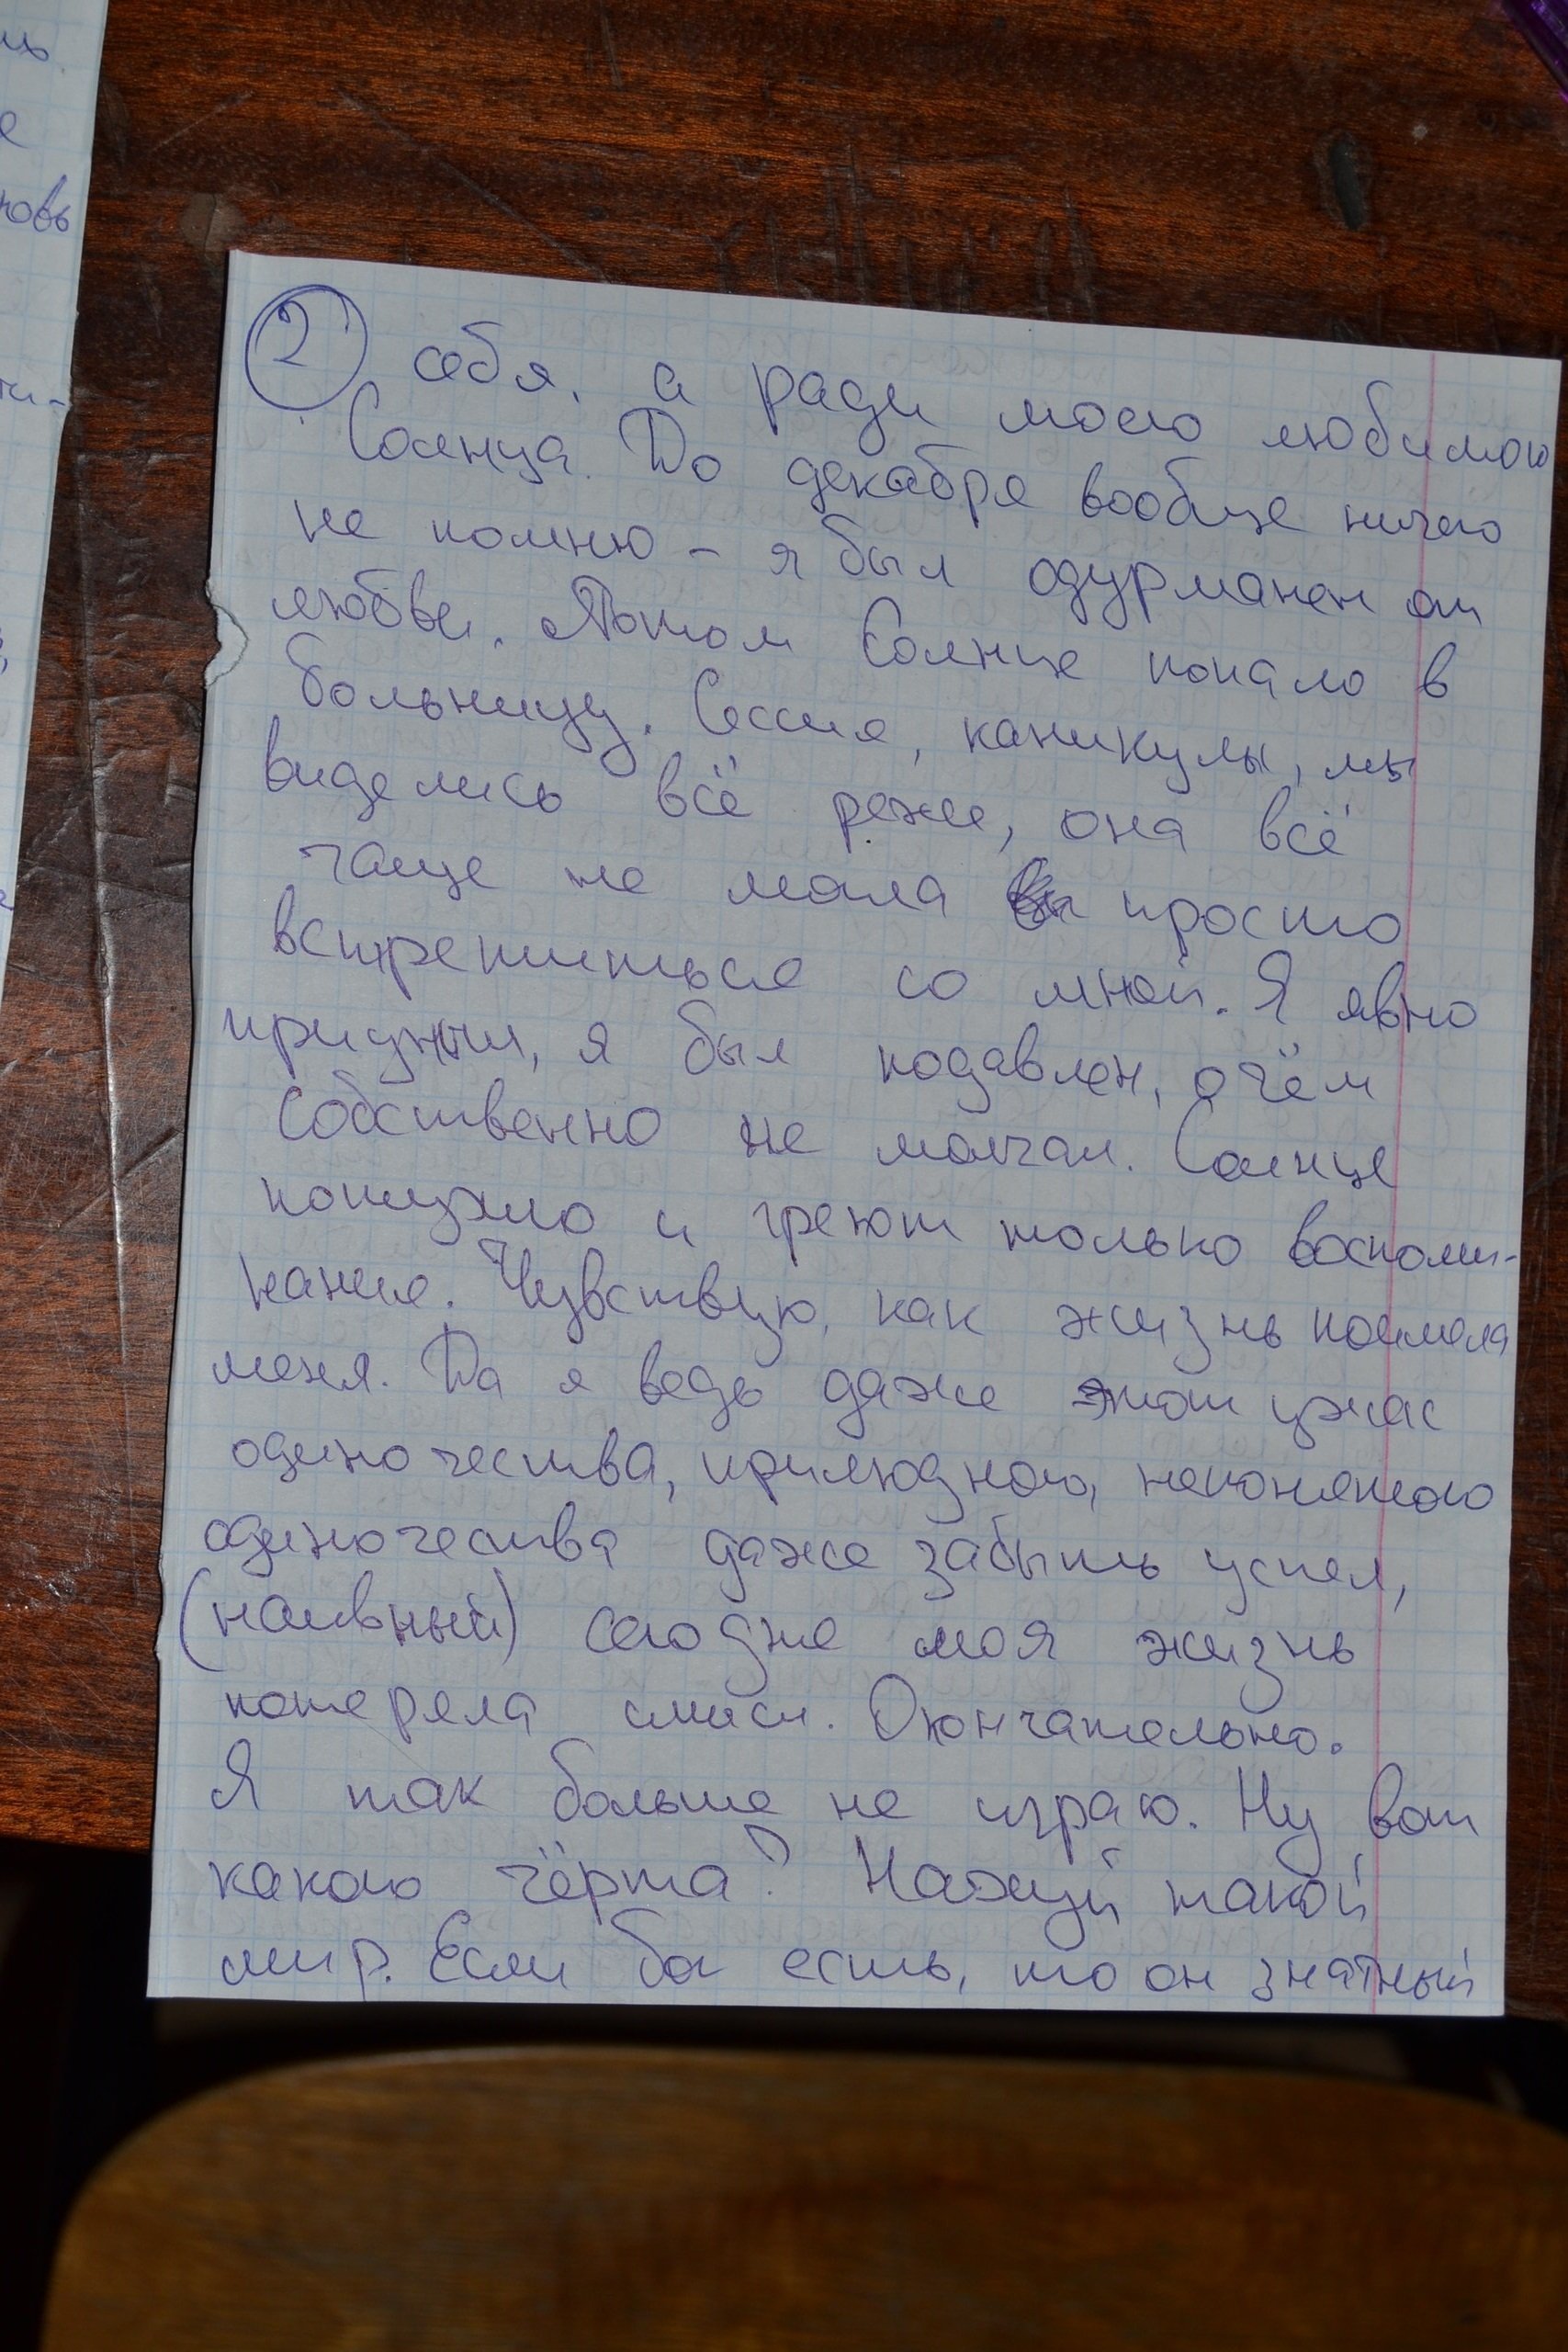 2 себя, а ради моего любимого
Солнца. До декабря вообще ничего
не помню - я был одурманен от
любви. Потом Солнце попало в
больницу. Сессия, каникулы, мы
виделись всё реже, она всё
чаще не могла просто
встретиться со мной. Я явно
приуныл, я был подавлен, о чём
собственно не молчал. Солнце
потухло и греют только воспоми-
нания. Чувствую, как жизнь поимела
меня. Да я ведь даже этот ужас
одиночества, прилюдного, непонятого
одиночества даже забыть успел,
(наивный) сегодня моя жизнь
потеряла смысл. Окончательно.
Я так больше не играю. Ну вот
какого чёрта? Нахуй такой
мир. Если бог есть, то он знатный